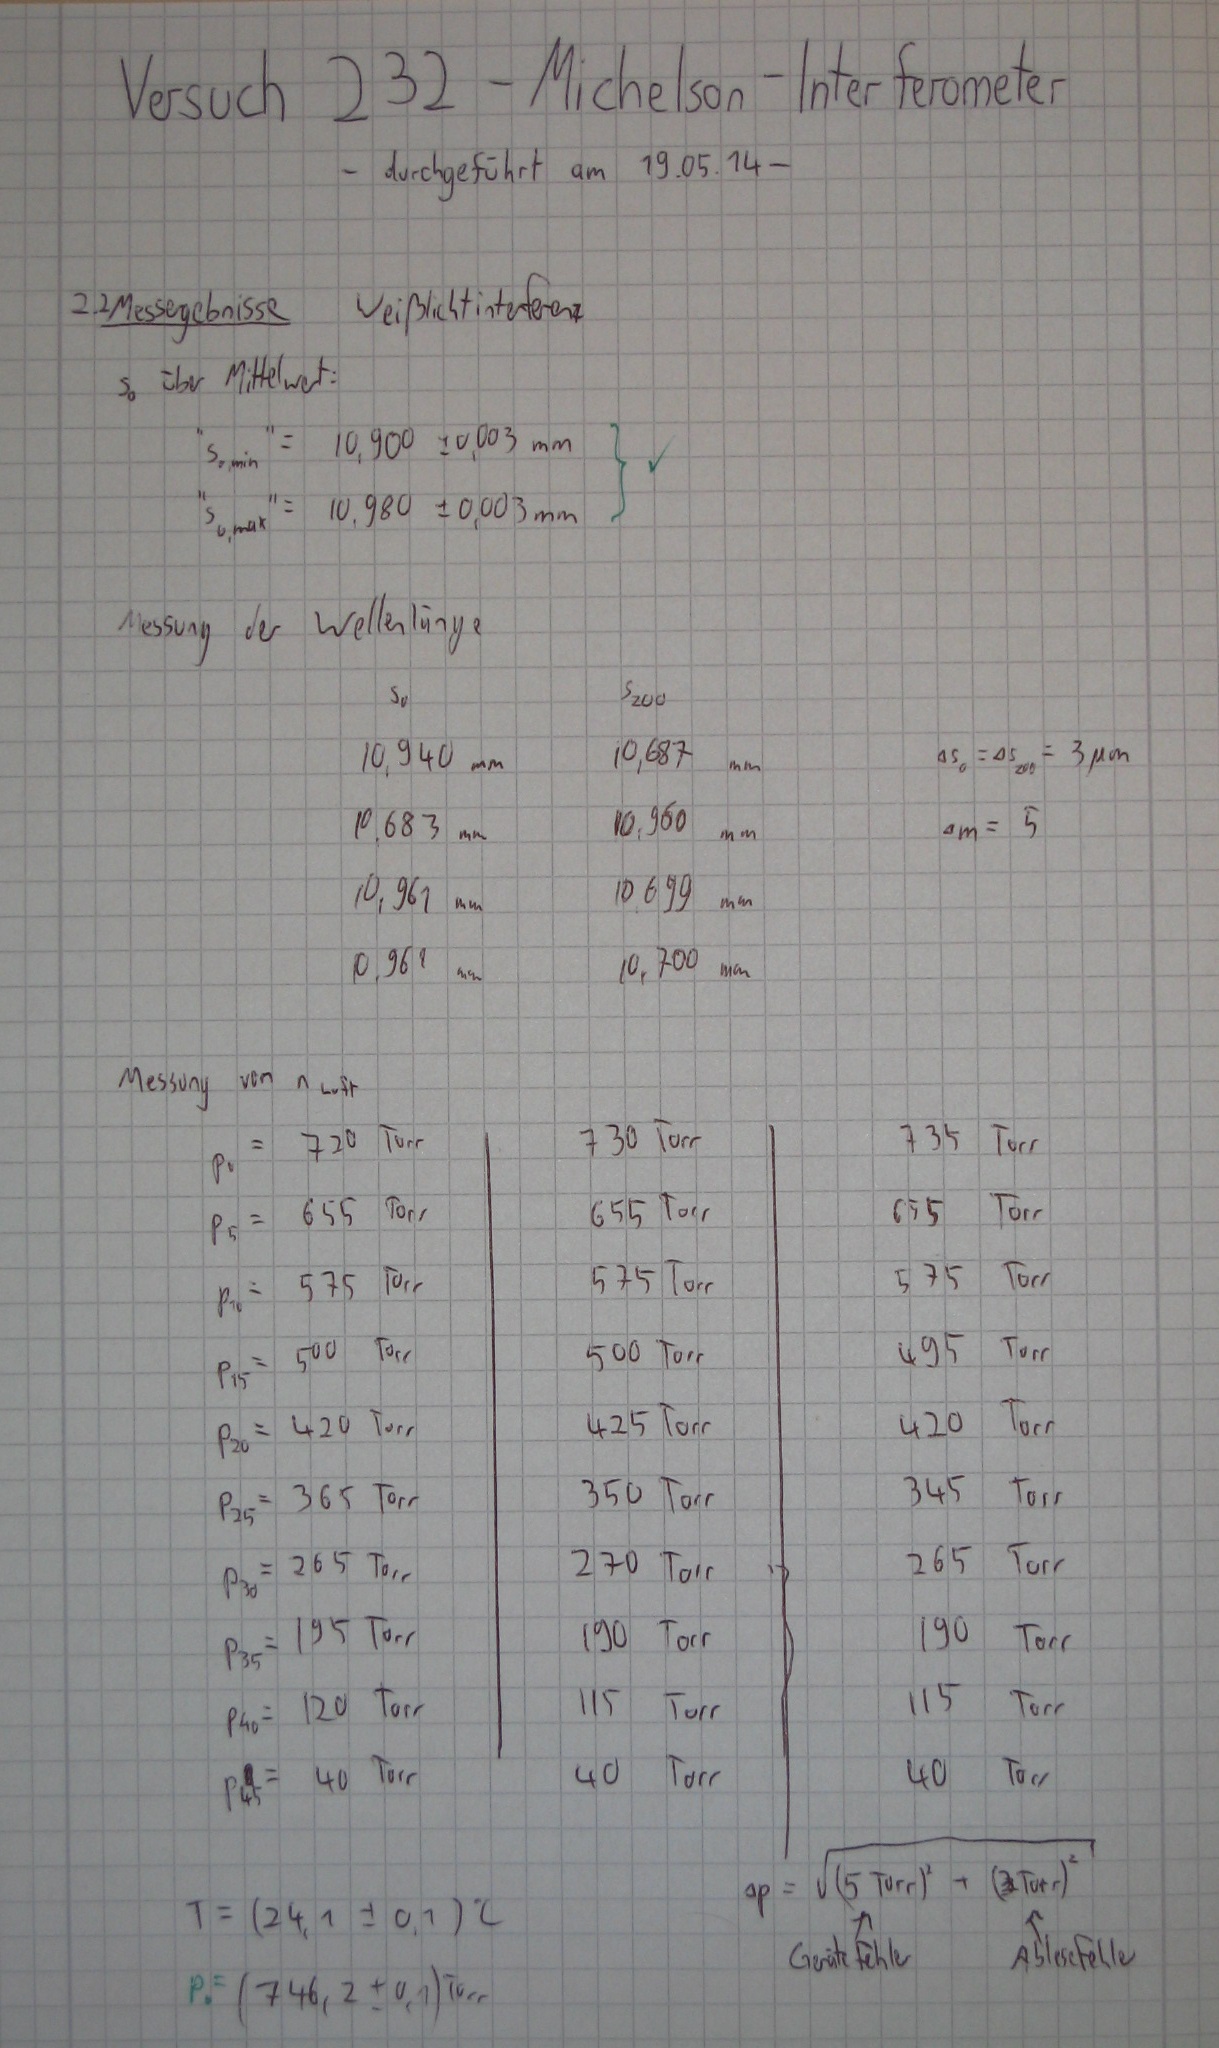 Versuch 232 - Michelson-Interferometer
- durchgeführt am 19.05.14 -
2.2 Messergebnisse Weißlichtinterferenz
s₀ über Mittelwert:
"s₀,min" = 10,900 ±0,003 mm
"s₀,max" = 10,980 ±0,003 mm ✓
Messung der Wellenlänge
s₀ s₂₀₀
10,940 mm 10,687 mm Δs₀ = Δs₂₀₀ = 3 µm
10,683 mm 10,960 mm Δm = 5
10,961 mm 10,699 mm
10,961 mm 10,700 mm
Messung von n Luft
p₀ = 720 Torr 730 Torr 735 Torr
p₅ = 655 Torr 655 Torr 655 Torr
p₁₀ = 575 Torr 575 Torr 575 Torr
p₁₅ = 500 Torr 500 Torr 495 Torr
p₂₀ = 420 Torr 425 Torr 420 Torr
p₂₅ = 365 Torr 350 Torr 345 Torr
p₃₀ = 265 Torr 270 Torr 265 Torr
p₃₅ = 195 Torr 190 Torr 190 Torr
p₄₀ = 120 Torr 115 Torr 115 Torr
p₄₅ = 40 Torr 40 Torr 40 Torr
Δp = √((5 Torr)² + (Torr)²)
Gerätefehler Ablesefehler
T = (24,1 ± 0,1) °C
p₀ = (746,2 ± 0,1) Torr